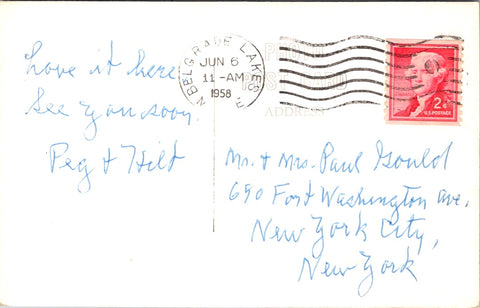 Love it here
See you soon.
Peg & Hilt
BELGRADE LAKES
JUN 6
11-AM
1958
ADDRESS
2¢
U.S. POSTAGE
Mr. & Mrs. Paul Gould
690 Fort Washington ave.
New York City,
New York